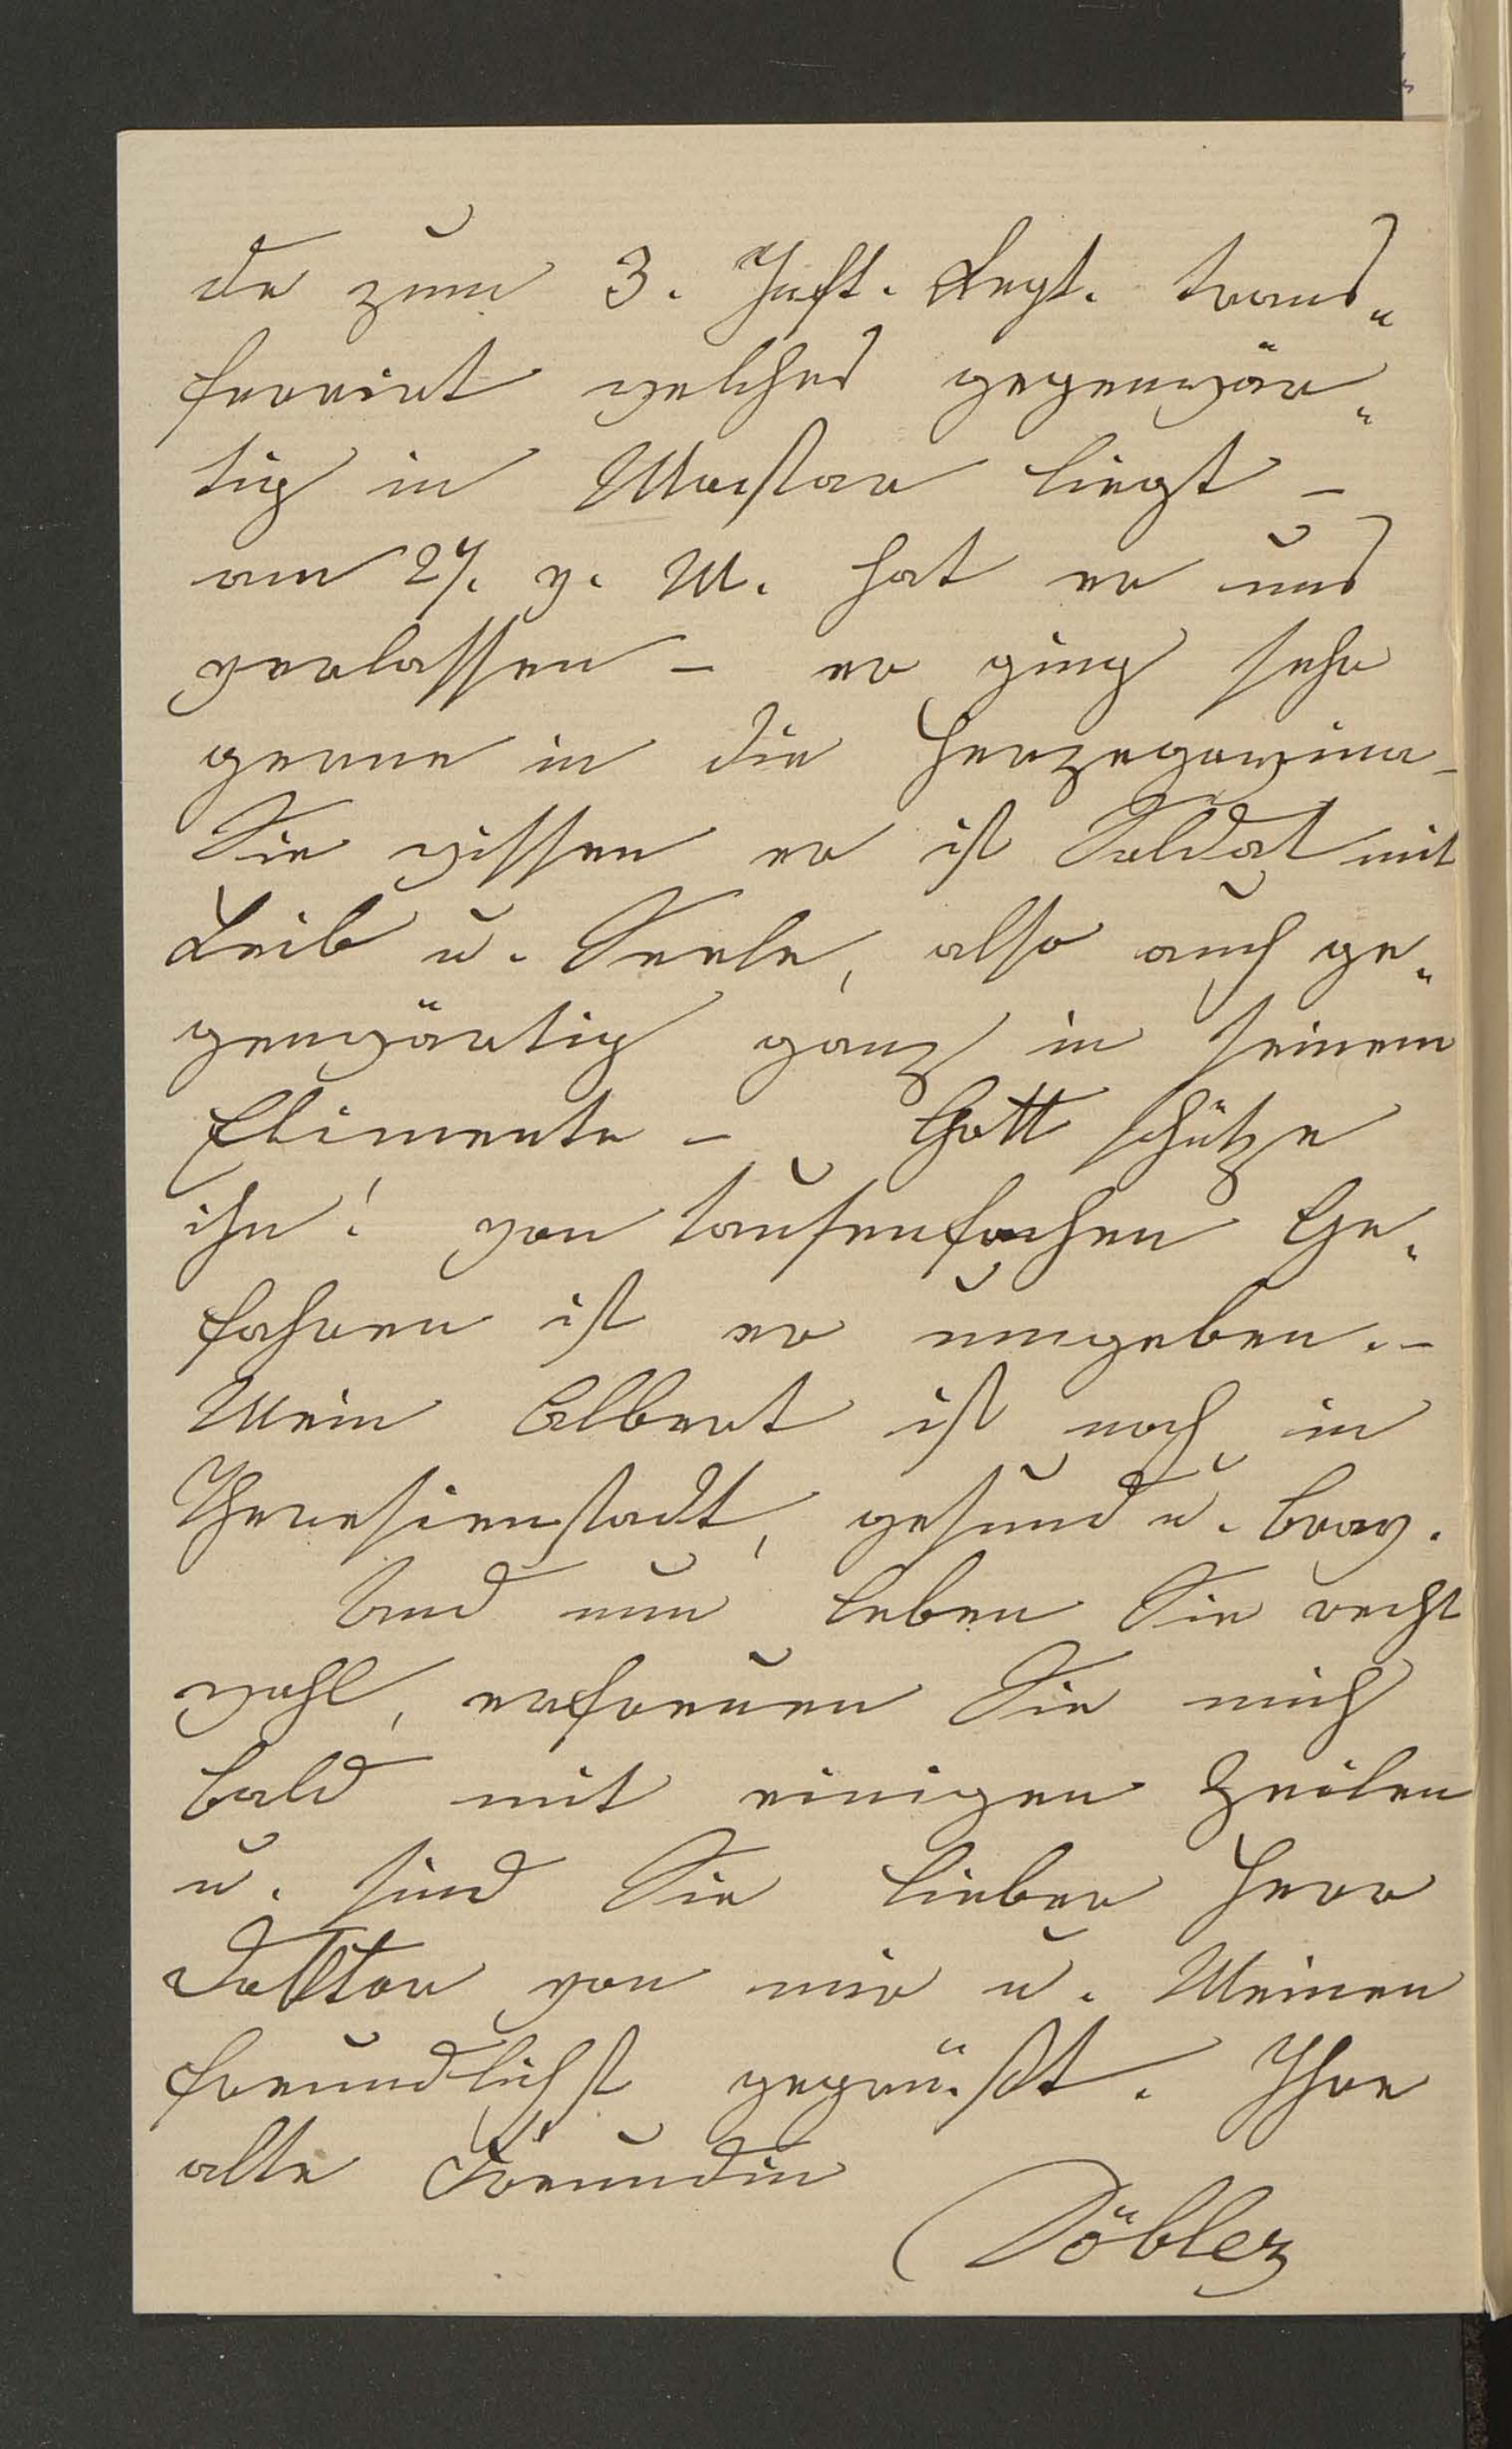 de zum 3. Inft. Regt. trans„
ferirt welches gegenwär„
tig in Mostar liegt –
am 27. v. M. hat er uns
verlassen – er ging sehr
gerne in die Herzegowina –
Sie wissen er ist Soldat mit
Leib u. Seele, also auch ge„
genwärtig ganz in seinem
Elimente – Gott schütze
ihn! von tausenfachen Ge„
fahren ist er umgeben. –
Mein Albert ist noch in
Theresienstadt, gesund u. brav.
Und nun leben Sie recht
wohl, erfreuen Sie mich
bald mit einigen Zeilen
u. sind Sie lieber Herr
Doktor von mir u. Meinen
freundlichst gegrüßt. Ihre
alte Freundin
Döbler